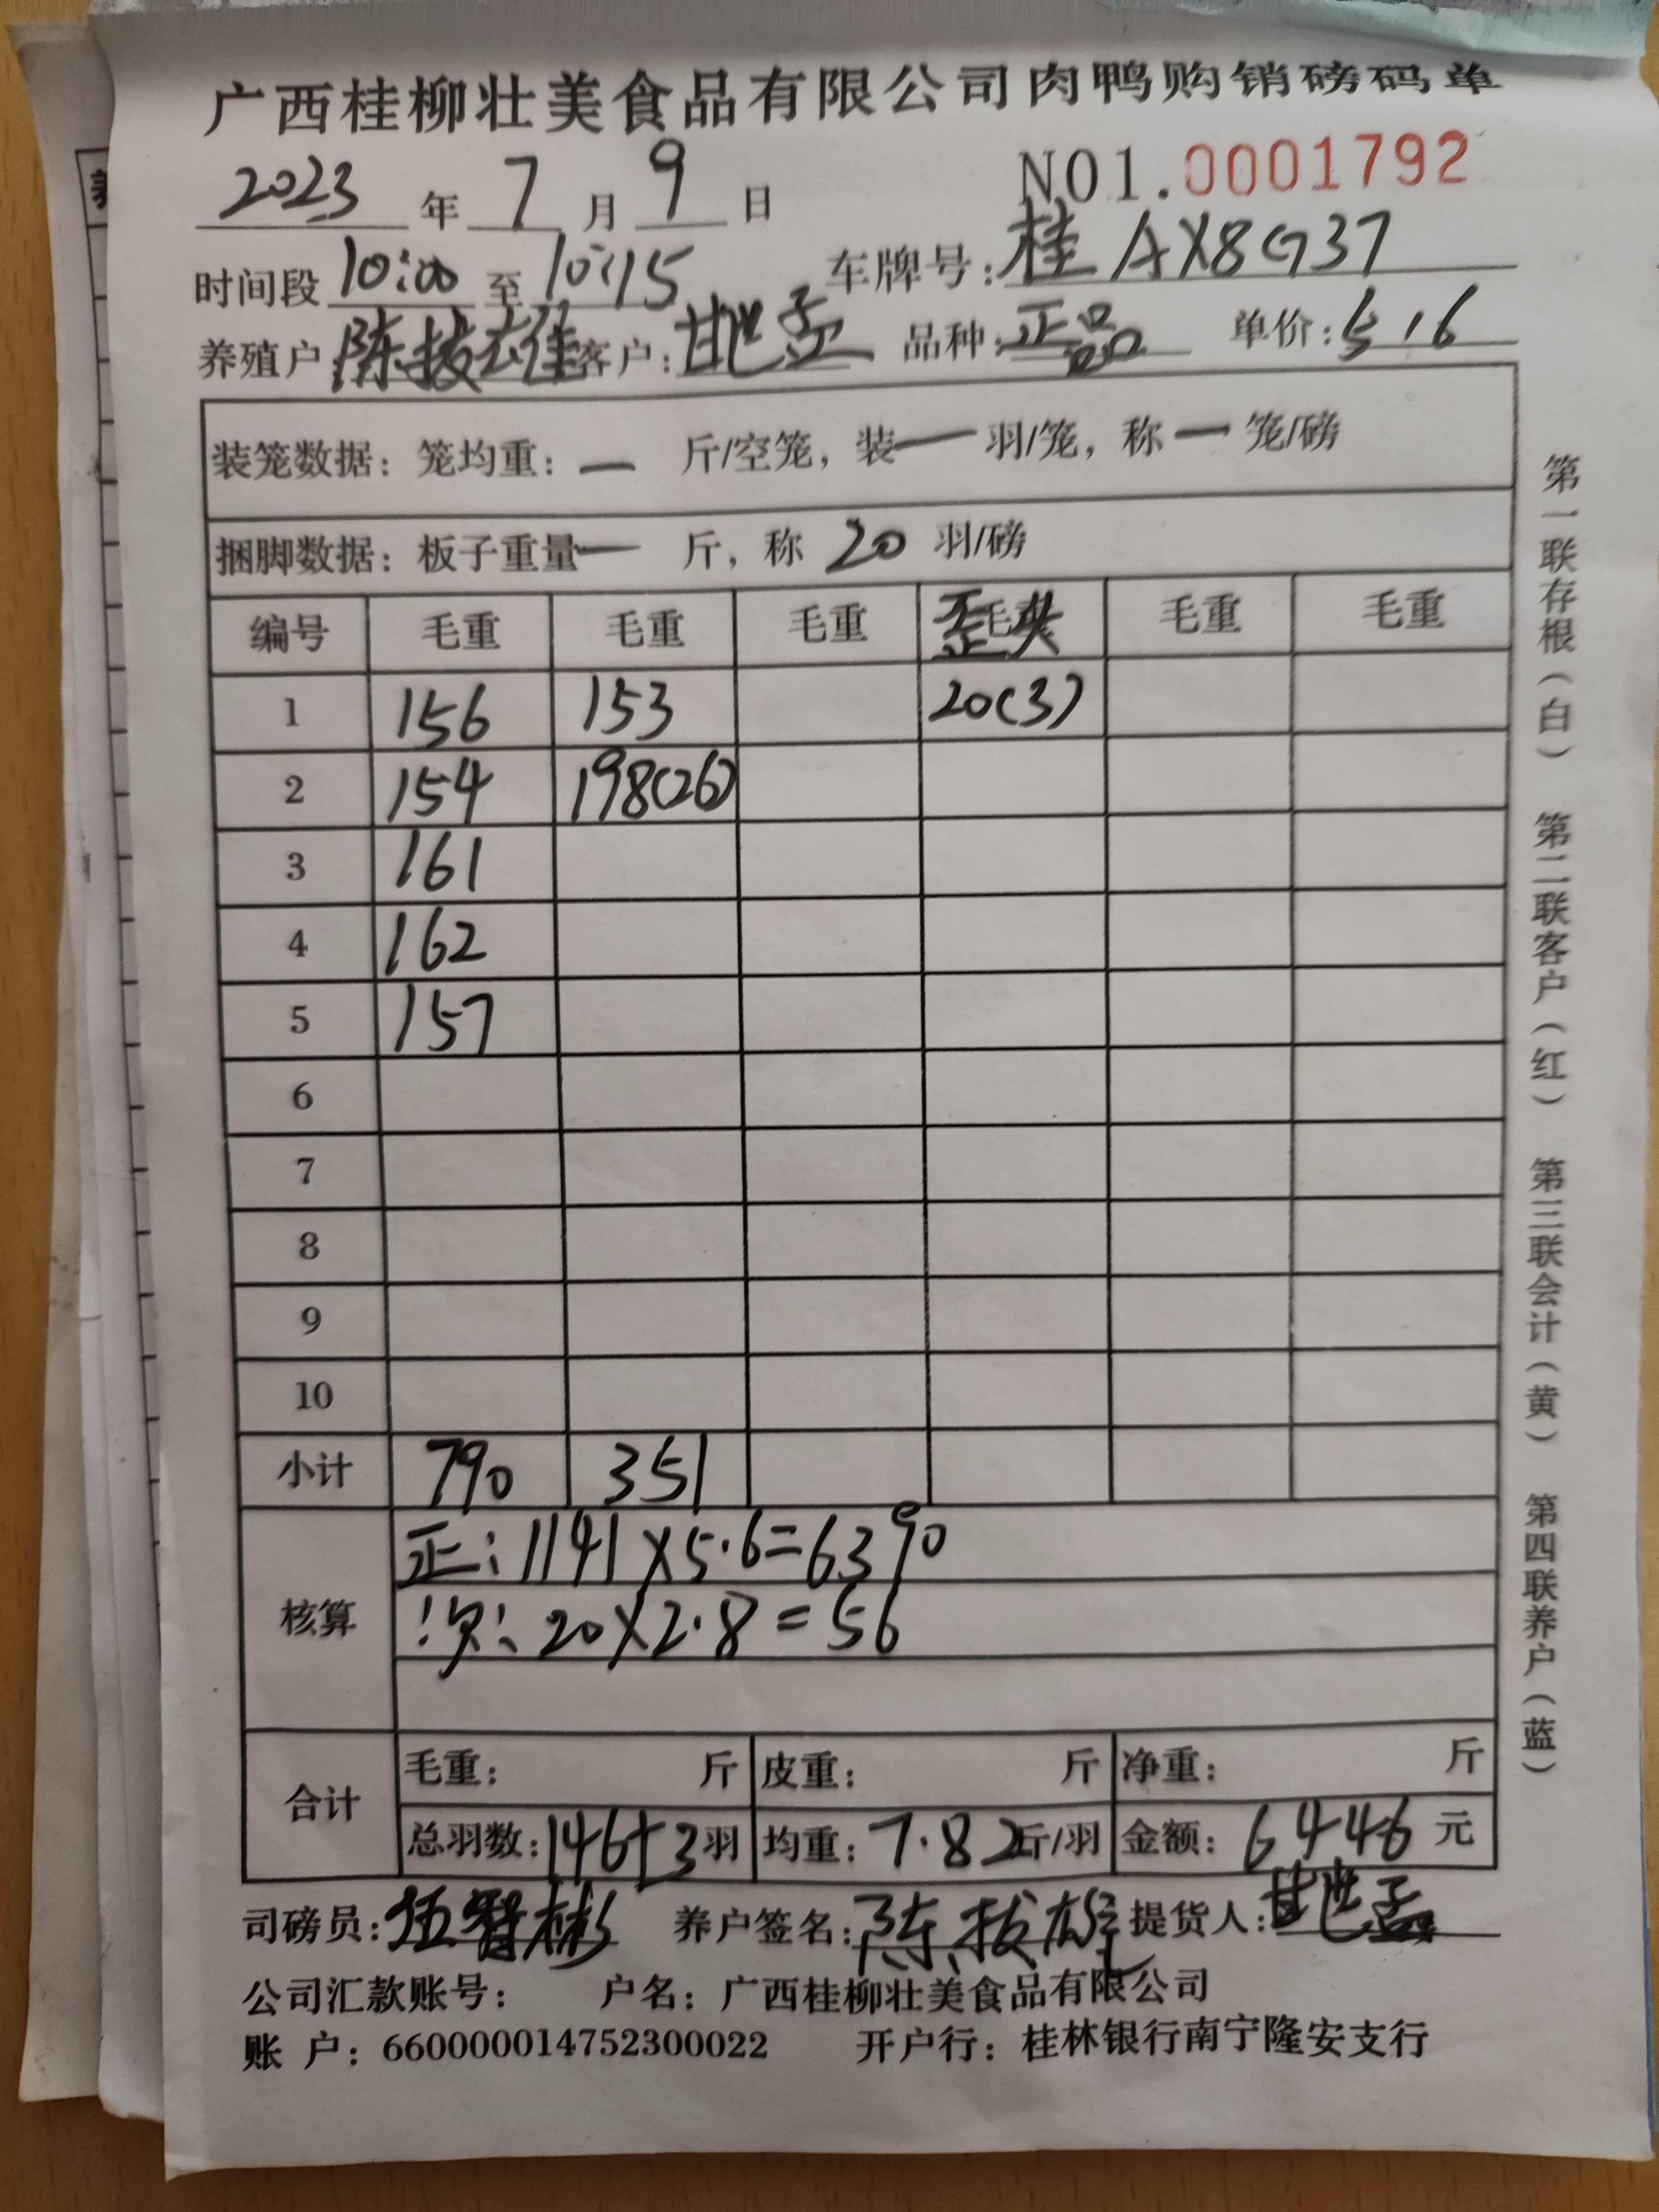 广西桂柳壮美食品有限公司肉鸭购销磅码单
2023 年 7 月 9 日 NO1.0001792
时间段 10:00 至 10:15 车牌号: 桂AX8G37
养殖户 陈拔雄 客户: 甘世孟 品种: 正品 单价: 5.6
装笼数据: 笼均重: — 斤/空笼, 装 — 羽/笼, 称 — 笼/磅
捆脚数据: 板子重量 — 斤, 称 20 羽/磅
编号 毛重 毛重 毛重 歪头 毛重 毛重
1 156 153 20(3)
2 154 198(26)
3 161
4 162
5 157
6
7
8
9
10
小计 790 351
核算 正: 1141×5.6=6390
次: 20×2.8=56
合计 毛重: 斤 皮重: 斤 净重: 斤
总羽数: 146+3 羽 均重: 7.82 斤/羽 金额: 6446 元
司磅员: 伍智彬 养户签名: 陈拔雄 提货人: 甘世孟
公司汇款账号: 户名: 广西桂柳壮美食品有限公司
账 户: 660000014752300022 开户行: 桂林银行南宁隆安支行
第一联存根(白) 第二联客户(红) 第三联会计(黄) 第四联养户(蓝)